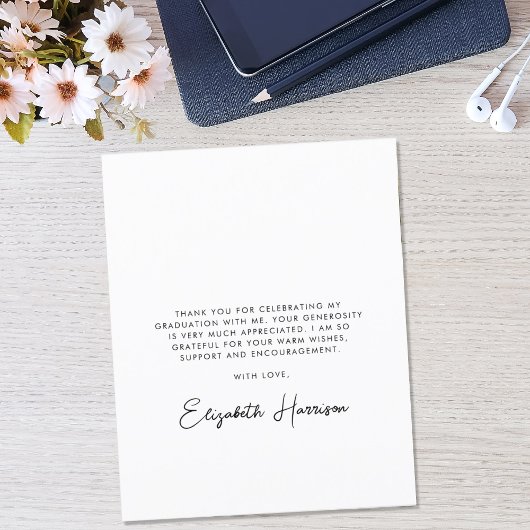 THANK YOU FOR CELEBRATING MY
GRADUATION WITH ME. YOUR GENEROSITY
IS VERY MUCH APPRECIATED. I AM SO
GRATEFUL FOR YOUR WARM WISHES,
SUPPORT AND ENCOURAGEMENT.
WITH LOVE,
Elizabeth Harrison